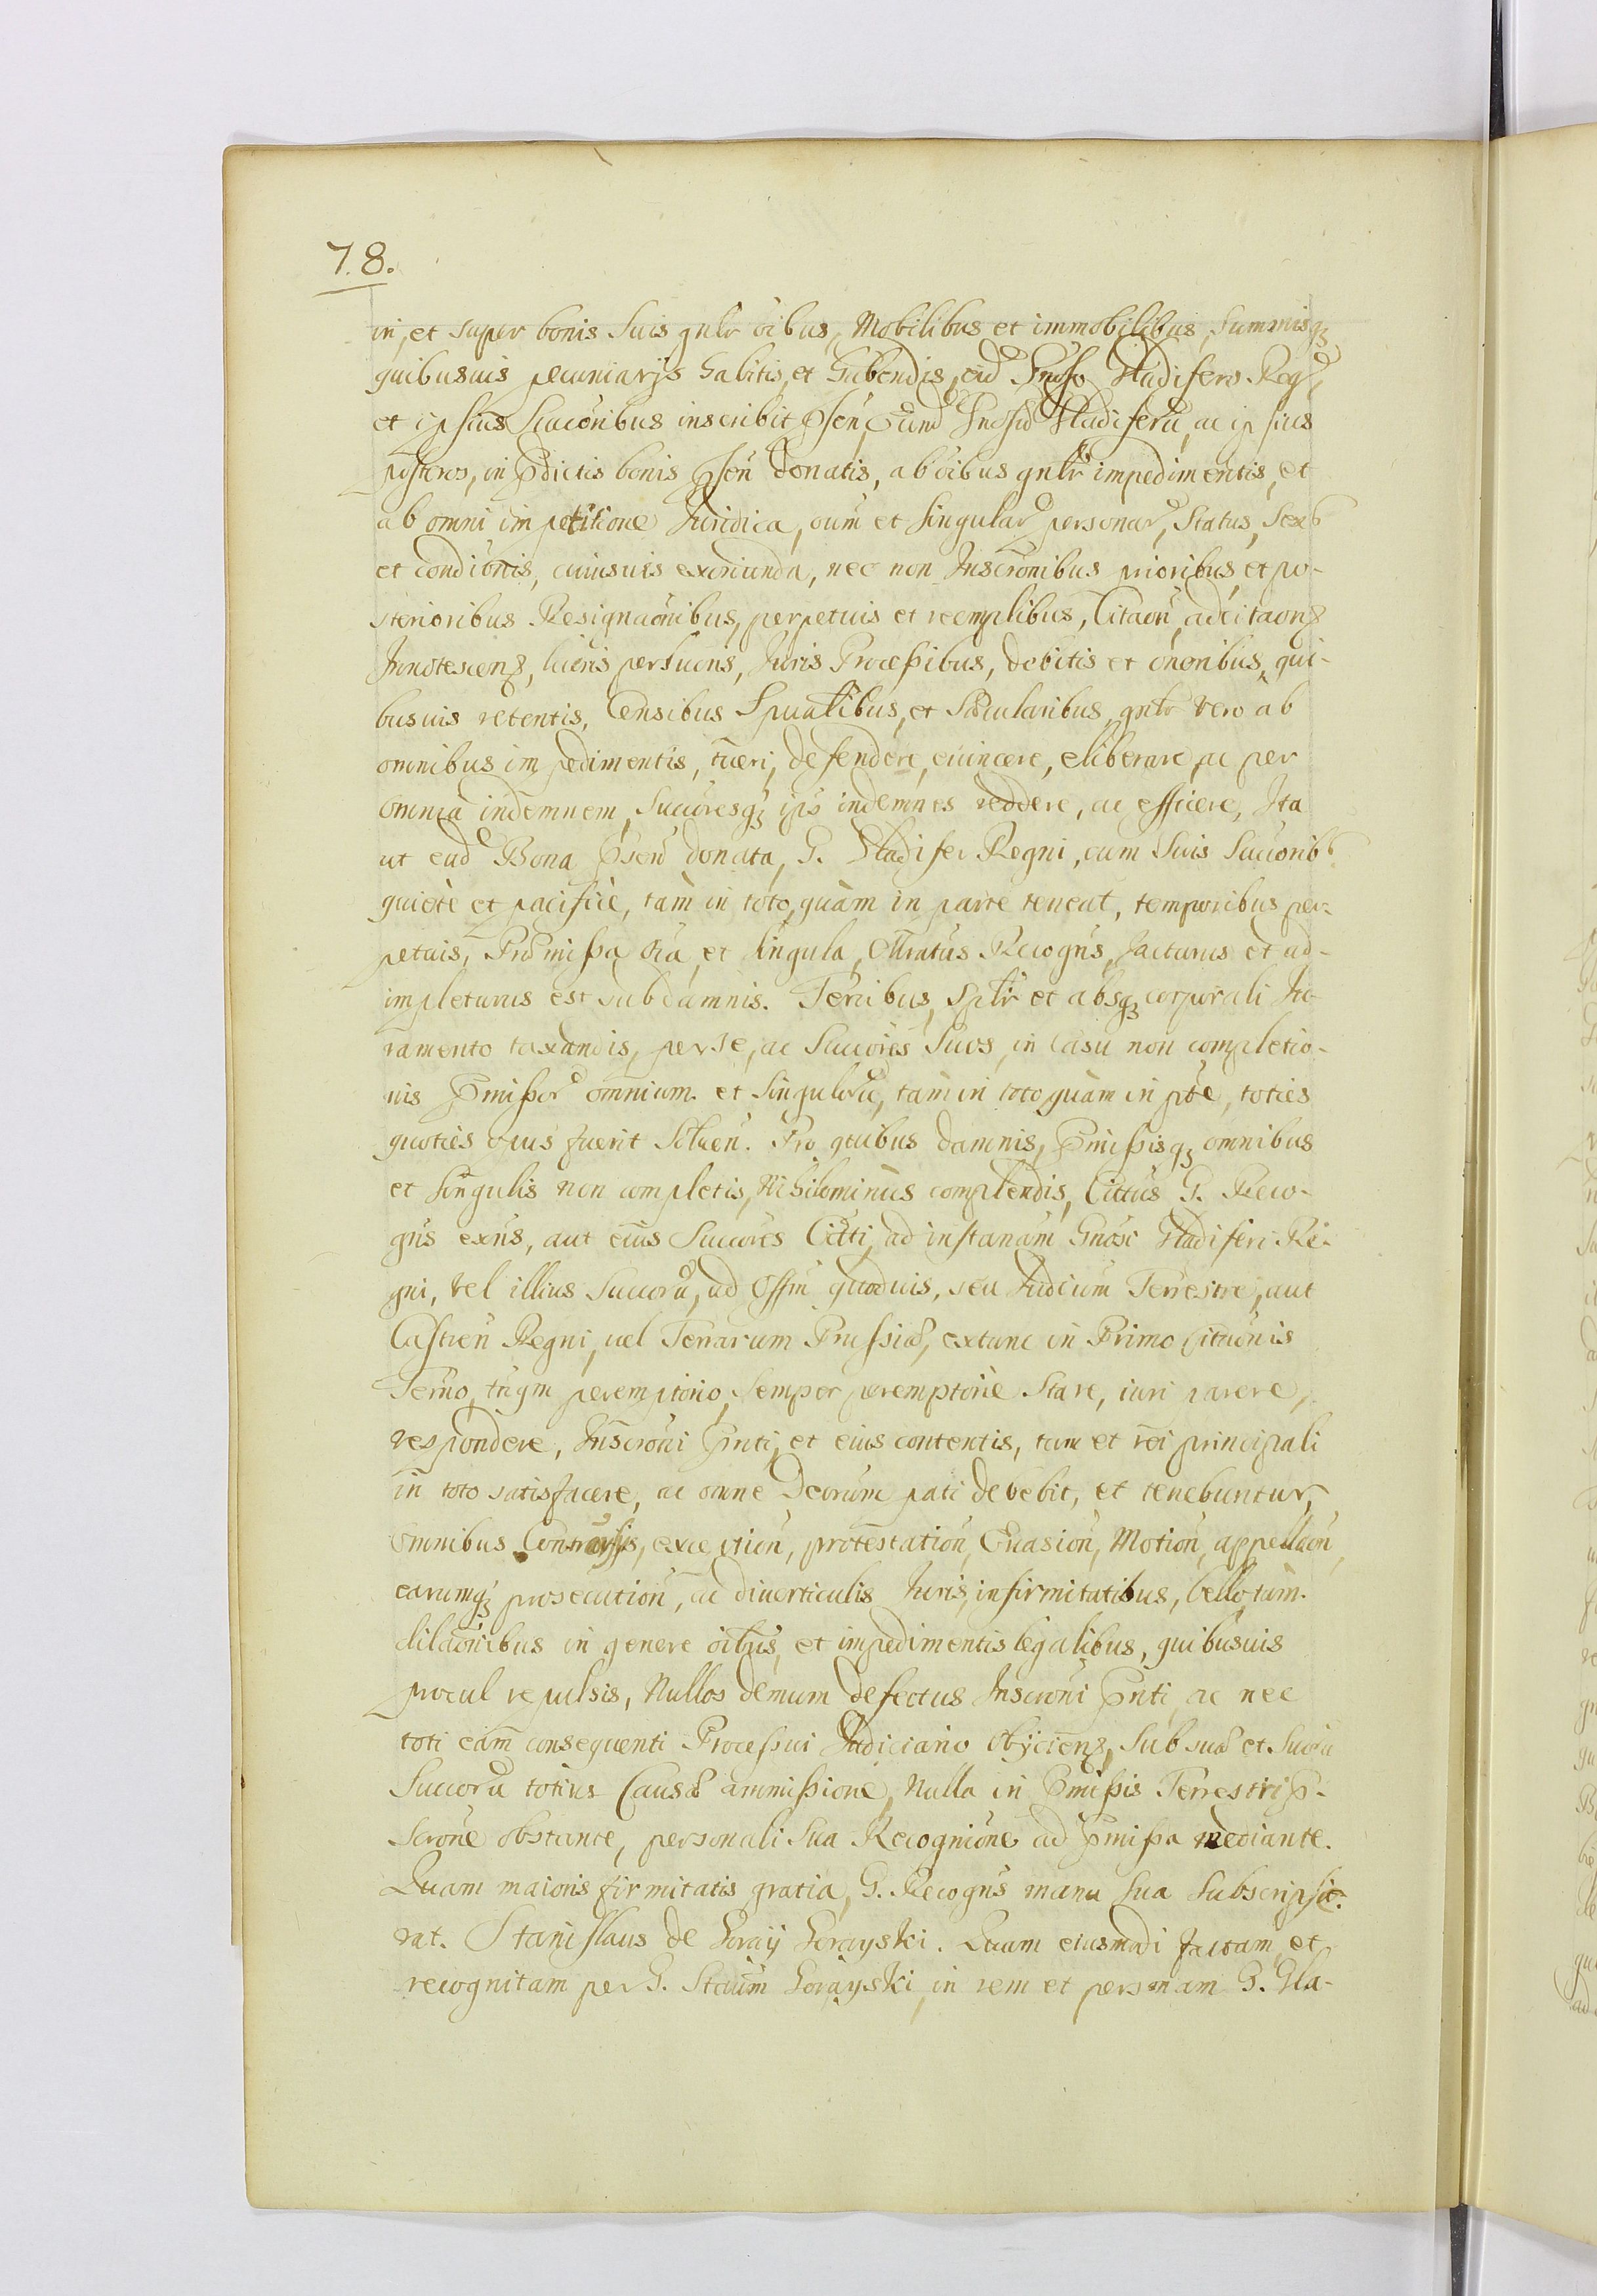 78.
in, et super bonis Suis gnlr oibus, Mobilibus et immobilibus, Summisq3
quibusuis pecuniarijs habitis, et habendis, eid Gnoso Gladifero Regni
et ipsius Succoribus inscribit Psen, Eund Gnosū Gladiferū, ac ipsius
posteros, in Pdictis bonis Psen donatis, ab oibus gnlr impedimentis, et
ab omni impetitione Iuridica, oium et singular personar, Status, Sexs
et conditionis, cuiusuis exoriunda, nec non Inscronibus prioribus, et po-
sterioribus Resignaonibus, perpetuis et reemplibus, Citaon, adcitaon3
Innotescen3, lucris perlucris, Iuris Processibus, debitis et oneribus, qui-
busuis retentis, Censibus Spualibus, et Sæcularibus, gnlr vero ab
omnibus impedimentis, tueri, defendere, euincere, eliberare, ac per
omnia indemnem, Succoresq3 ips indemnes reddere, ac efficere, Ita
ut ead Bona Psen donata, G. Gladifer Regni, cum Suis Succorib9
quietè et pacificè, tàm in toto, quàm in parte teneat, temporibus per-
petuis, Præmissa oia et singula, Offratus Recogns, facturus et ad-
impleturus est sub damnis. Terribus, Splr et absq3 corporali Iu-
ramento taxandis, per se, ac Succores Suos, in casu non completio-
nis Pmissor omnium et Singulorū, tàm in toto quàm in pte, toties
quoties opus fuerit Soluen. Pro quibus damnis, Pmissisq3 omnibus
et singulis non completis, Nihilominùs complendis, Cittus G. Reco-
gns exns, aut eius Succores Citti, ad instanam Gnosi Gladiferi Re-
gni, vel illius Succorū, ad Offm quoduis, seu Iudicium Terrestre, aut
Castren Regni, vel Terrarum Prussiæ, extunc in Primo Cituonis
Termo, tanqm peremptorio, Semper peremptorie Stare, iuri parere,
respondere, Inscroni Pnti, et eius contentis, tum et rei principali
in toto satisfacere, ac omne Decrum pati debebit, et tenebuntur,
omnibus Contrarijs, exception, protestation, Euasion, Motion, appellaon,
earumq3 prosecution, ac diuerticulis Iuris, infirmitatibus, bello, tàm
dilaonibus in genere oibus, et impedimentis legalibus, quibusuis
procul repulsis, Nullos demum defectus Inscroni Pnti, ac nec
toti eam consequenti Processui Iudiciario obijcien3, Sub sua et Suoru
Succorū totius Causæ ammissione, Nulla in Pmissis Terrestri P-
scrone obstante, personali Sua Recognione ad Pmissa mediante.
Quam maioris firmitatis gratia, G. Recogns manu Sua Subscripse-
rat. Stanislaus de Goraÿ Gorayski. Quam eiusmodi factam et
recognitam per G. Staum Gorayski, in rem et personam G. Gla-